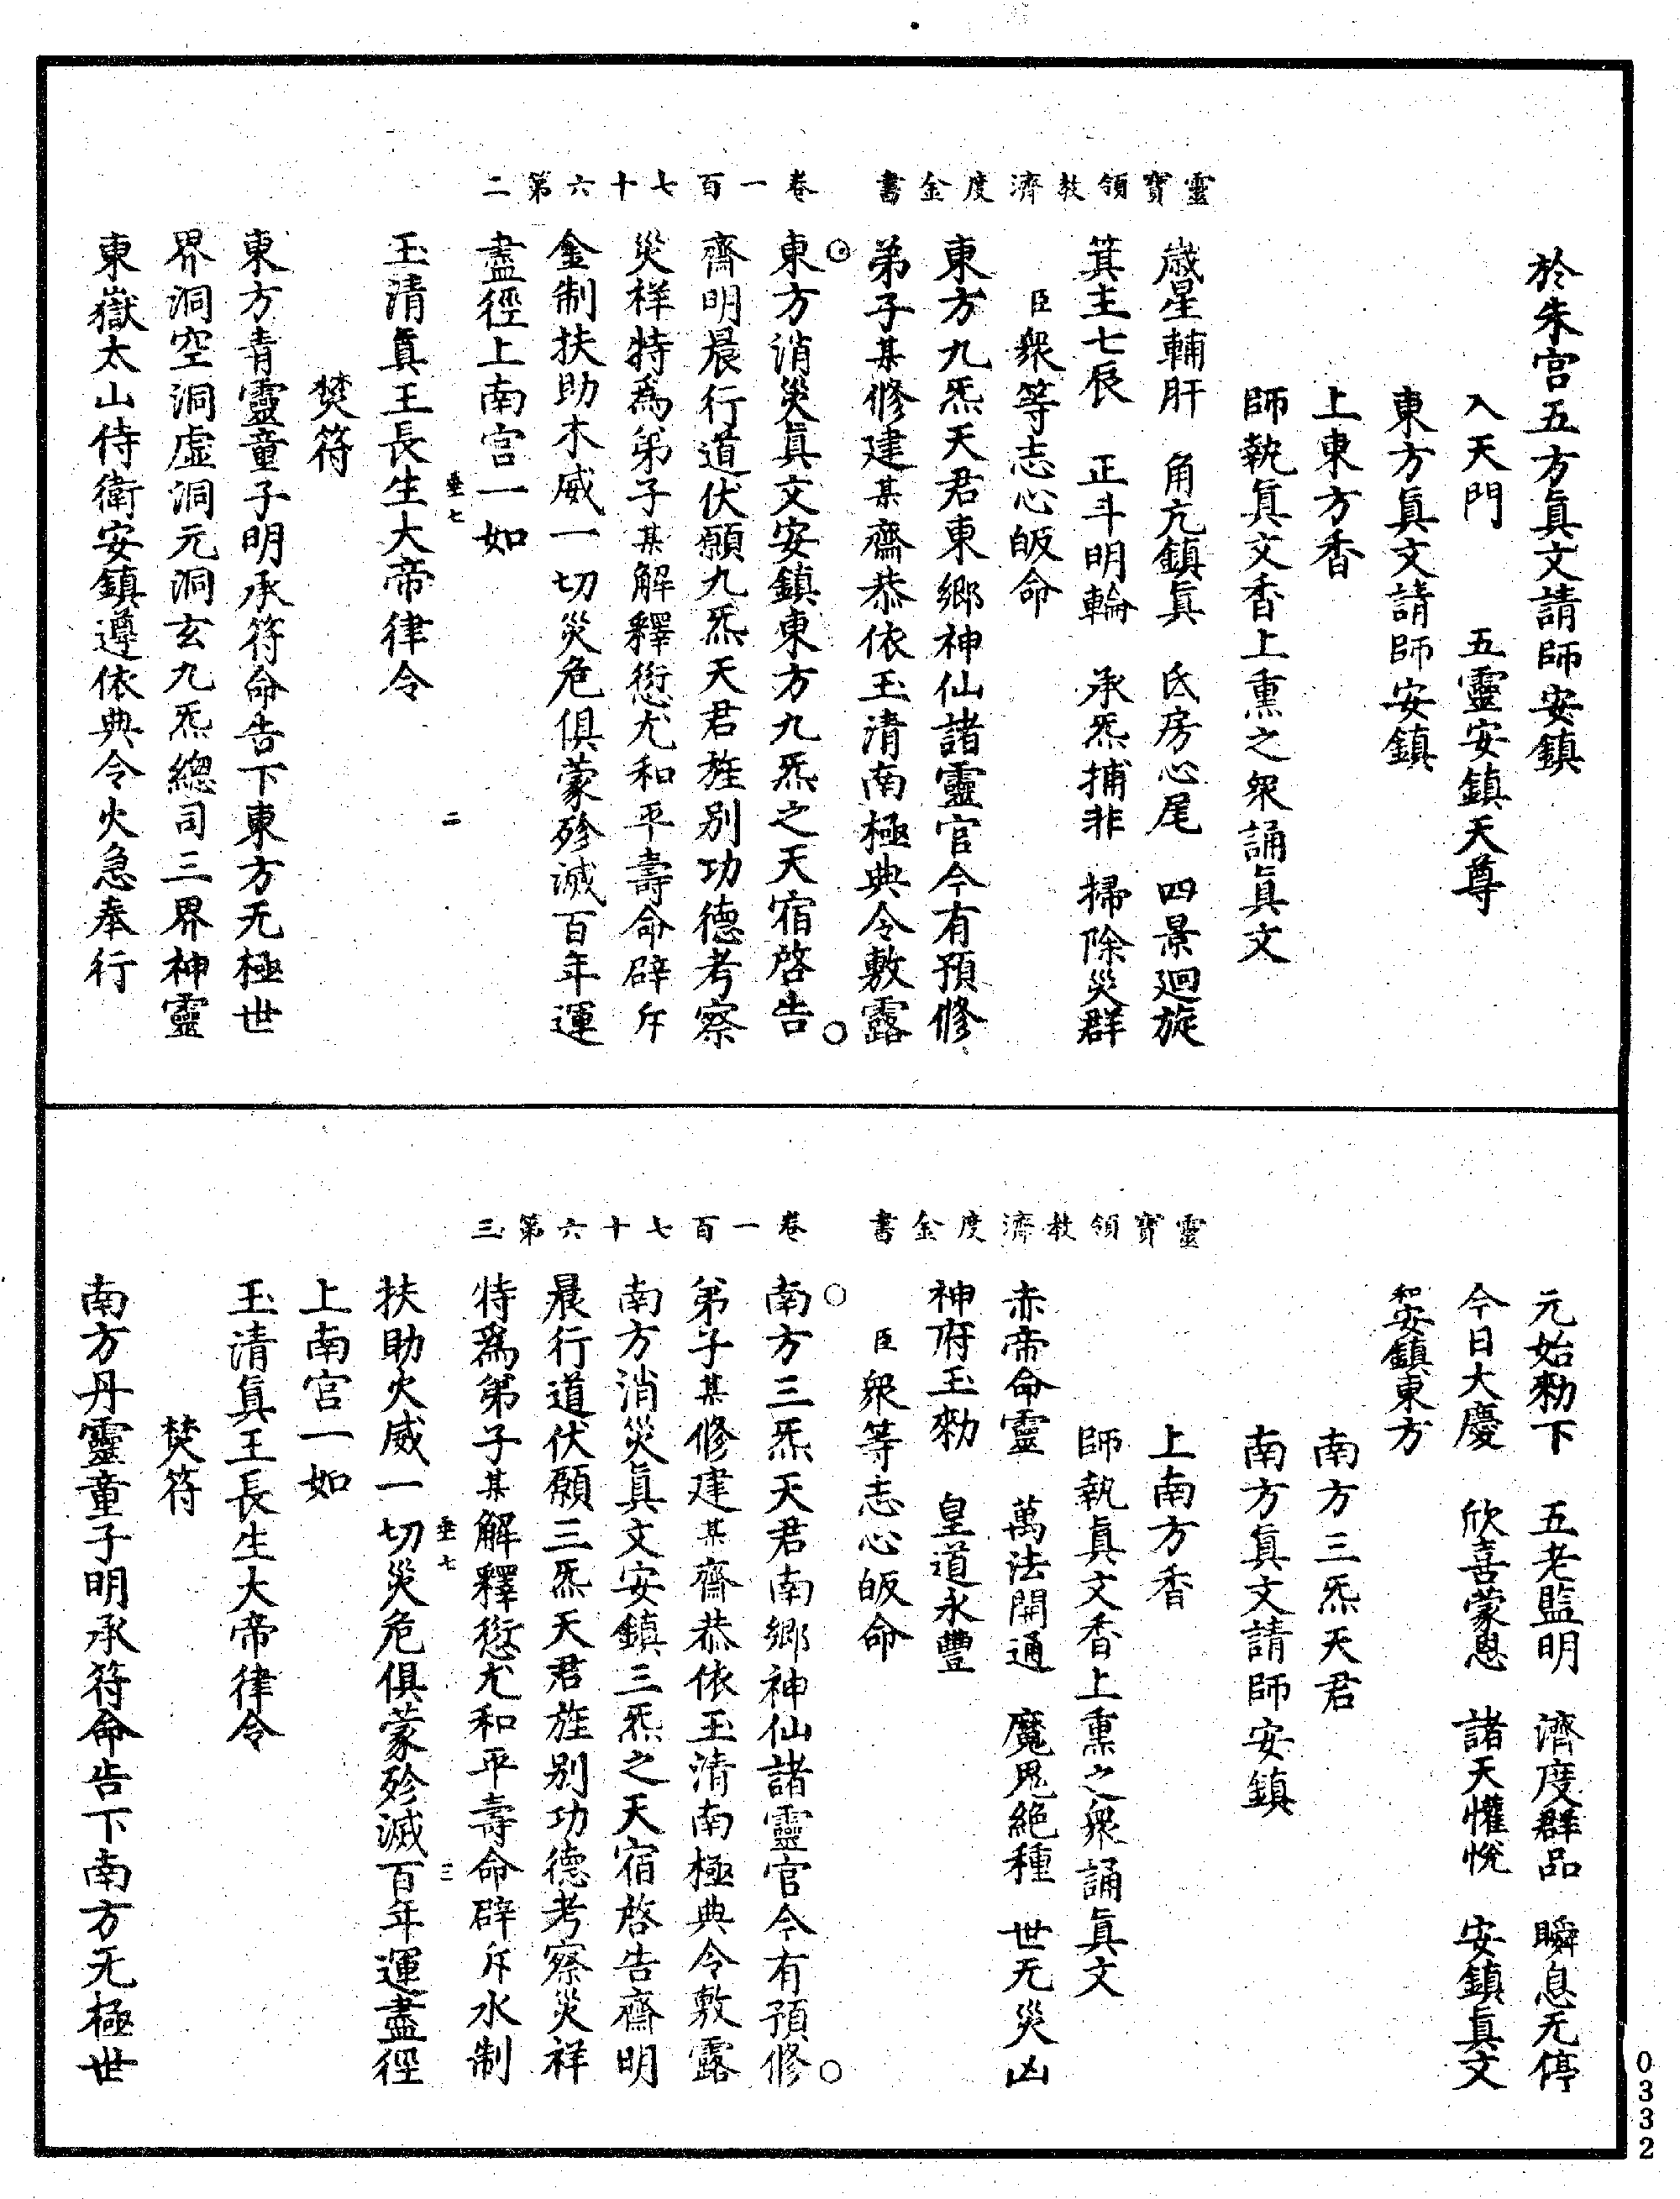 於朱宫五方眞文請師安鎮
入天門　五靈安鎮天尊
東方眞文請師安鎮
上東方香
師執眞文香上熏之衆誦眞文
歲星輔肝　角亢鎮眞　氐房心尾　四景廻旋
箕主七辰　正斗明輪　承炁捕非　掃除災群
臣衆等志心皈命
東方九炁天君東鄉神仙諸靈官今有預修
弟子某修建某齋恭依玉清南極典令敷露
東方消災眞文安鎮東方九炁之天宿啓告
齋明晨行道伏願九炁天君旌别功德考察
災祥特爲弟子某解釋愆尤和平壽命辟斥
金制扶助木威一切災危俱蒙殄滅百年運
盡徑上南宫一如
玉清眞王長生大帝律令
焚符
東方青靈童子明承符命告下東方无極世
界洞空洞虚洞元洞玄九炁總司三界神靈
東嶽太山侍衛安鎮遵依典令火急奉行
靈寶領教濟度金書　卷一百七十六第二
垂七　二
元始勑下　五老監明　濟度群品　瞬息无停
今日大慶　欣喜蒙恩　諸天懽悅　安鎮眞文
和安鎮東方
南方三炁天君
南方眞文請師安鎮
上南方香
師執眞文香上熏之衆誦眞文
赤帝命靈　萬法開通　魔鬼絶種　世无災凶
神府玉勑　皇道永豐
臣衆等志心皈命
南方三炁天君南鄉神仙諸靈官今有預修
弟子某修建某齋恭依玉清南極典令敷露
南方消災眞文安鎮三炁之天宿啓告齋明
晨行道伏願三炁天君旌别功德考察災祥
特爲弟子某解釋愆尤和平壽命辟斥水制
扶助火威一切災危俱蒙殄滅百年運盡徑
上南宫一如
玉清眞王長生大帝律令
焚符
南方丹靈童子明承符命告下南方无極世
靈寶領教濟度金書　卷一百七十六第三
垂七　三
0332